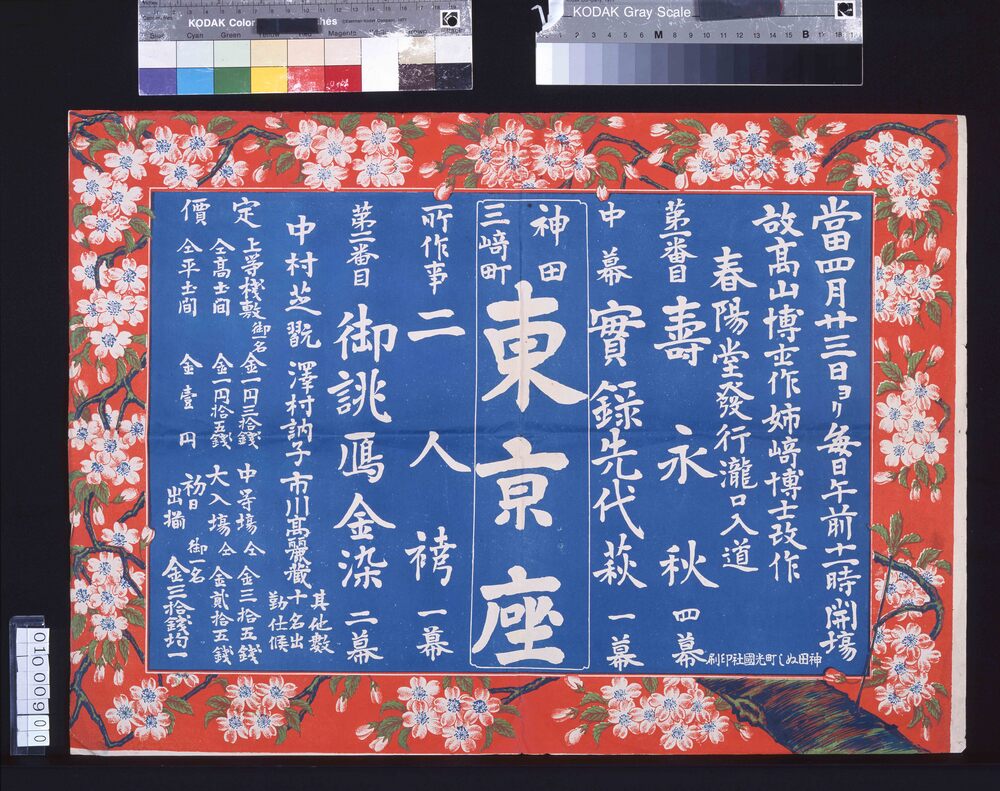 KODAK Color
KODAK Gray Scale
當四月廿三日ヨリ毎日午前十一時開場
故高山博士作姉﨑博士改作
春陽堂發行瀧口入道
第一番目 壽永秋 四幕
中幕 實錄先代萩 一幕
神田
三﨑町
東京座
所作事 二人袴 一幕
第二番目 御誂鴈金染 二幕
中村芝翫 澤村訥子 市川高麗藏
其他數
十名出
勤仕候
定
價
上等棧敷御一名 金一円三拾錢
仝高土間 金一円拾五錢
仝平土間 金壹円
中等場 仝 金三拾五錢
大入場 仝 金貳拾五錢
初日
出揃
御一名 金三拾錢均一
神田ぬし町光國社印刷
01000900